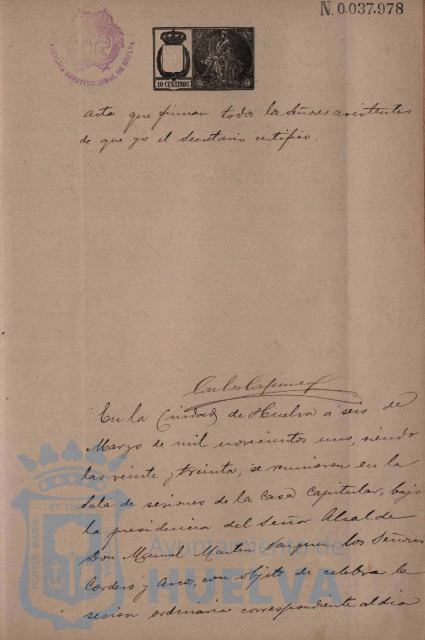 N. 0.037.978
ALCALDIA CONSTITUCIONAL DE HUELVA
10 CENTIMOS
acta que firman todos los Señores asistentes
de que yo el Secretario certifico.
En la Ciudad de Huelva á seis de
Marzo de mil novecientos uno, siendo
las veinte y treinta, se reunieron en la
Sala de sesiones de la Casa Capitular, bajo
la presidencia del Señor Alcalde
Don Manuel Martin los Señores
Cordero y con objeto de celebrar la
sesion ordinaria correspondiente al dia
Ayuntamiento de
HUELVA